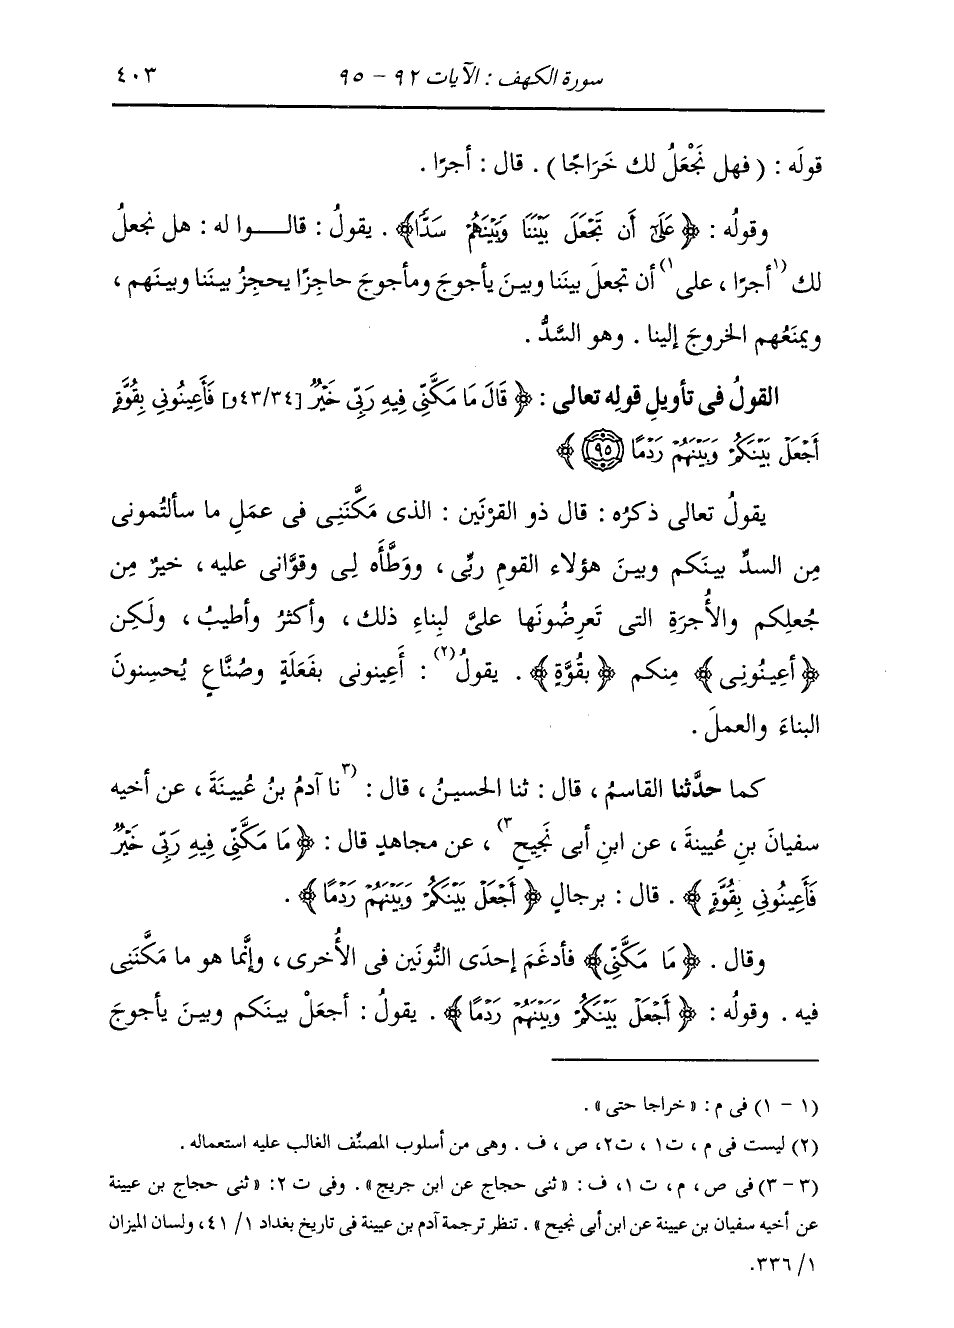 سورة الكهف : الآيات ٩٢ - ٩٥ ٤٠٣
قولَه : ( فهل نَجْعَلُ لك خَرَاجًا ) . قال : أجرًا .
وقولُه : ﴿ عَلَىٰٓ أَن تَجْعَلَ بَيْنَنَا وَبَيْنَهُمْ سَدًّا﴾ . يقولُ : قالــوا له : هل نجعلُ
لك (١أجرًا ، على ١)أن تجعلَ بينَنا وبينَ يأجوجَ ومأجوجَ حاجزًا يحجِزُ بينَنا وبينَهم ،
ويمنَعُهم الخروجَ إلينا . وهو السَّدُّ .
القولُ فى تأويلِ قولِه تعالى : ﴿ قَالَ مَا مَكَّنِّى فِيهِ رَبِّى خَيْرٌ [٤٣/٣٤و] فَأَعِينُونِى بِقُوَّةٍ
أَجْعَلْ بَيْنَكُمْ وَبَيْنَهُمْ رَدْمًا ۝٩٥ ﴾
يقولُ تعالى ذكرُه : قال ذو القرْنَين : الذى مَكَّنَنِى فى عمَلِ ما سألتُمونى
مِن السدِّ بينَكم وبينَ هؤلاء القومِ ربِّى ، ووَطَّأَه لِى وقوَّانى عليه ، خيرٌ مِن
جُعلِكم والأُجرَةِ التى تَعرِضُونَها علىَّ لبِناءِ ذلك ، وأكثرُ وأطيبُ ، ولَكِن
﴿أَعِينُونِى﴾ مِنكم ﴿بِقُوَّةٍ﴾ . يقولُ(٢) : أَعِينونى بفَعَلَةٍ وصُنَّاعٍ يُحسِنونَ
البناءَ والعملَ .
كما حدَّثنا القاسمُ ، قال : ثنا الحسينُ ، قال : (٣نا آدمُ بنُ عُيينَةَ ، عن أخيه
سفيانَ بنِ عُيينةَ ، عن ابنِ أبى نَجِيحٍ ٣) ، عن مجاهدٍ قال : ﴿ مَا مَكَّنِّى فِيهِ رَبِّى خَيْرٌ
فَأَعِينُونِى بِقُوَّةٍ ﴾ . قال : برجالٍ ﴿ أَجْعَلْ بَيْنَكُمْ وَبَيْنَهُمْ رَدْمًا ﴾ .
وقال . ﴿مَا مَكَّنِّى﴾ فأدغَمَ إحدَى النُّونَين فى الأُخرى ، وإنَّما هو ما مَكَّنَنِى
فيه . وقولُه : ﴿ أَجْعَلْ بَيْنَكُمْ وَبَيْنَهُمْ رَدْمًا ﴾ . يقولُ : أجعَلْ بينَكم وبينَ يأجوجَ
(١ - ١) فى م : « خراجا حتى » .
(٢) ليست فى م ، ت١ ، ت٢، ص ، ف . وهى من أسلوب المصنِّف الغالب عليه استعماله .
(٣ - ٣) فى ص ، م ، ت ١، ف : « ثنى حجاج عن ابن جريج » . وفى ت ٢: « ثنى حجاج بن عيينة
عن أخيه سفيان بن عيينة عن ابن أبى نجيح » . تنظر ترجمة آدم بن عيينة فى تاريخ بغداد ١/ ٤١، ولسان الميزان
١/ ٣٣٦.